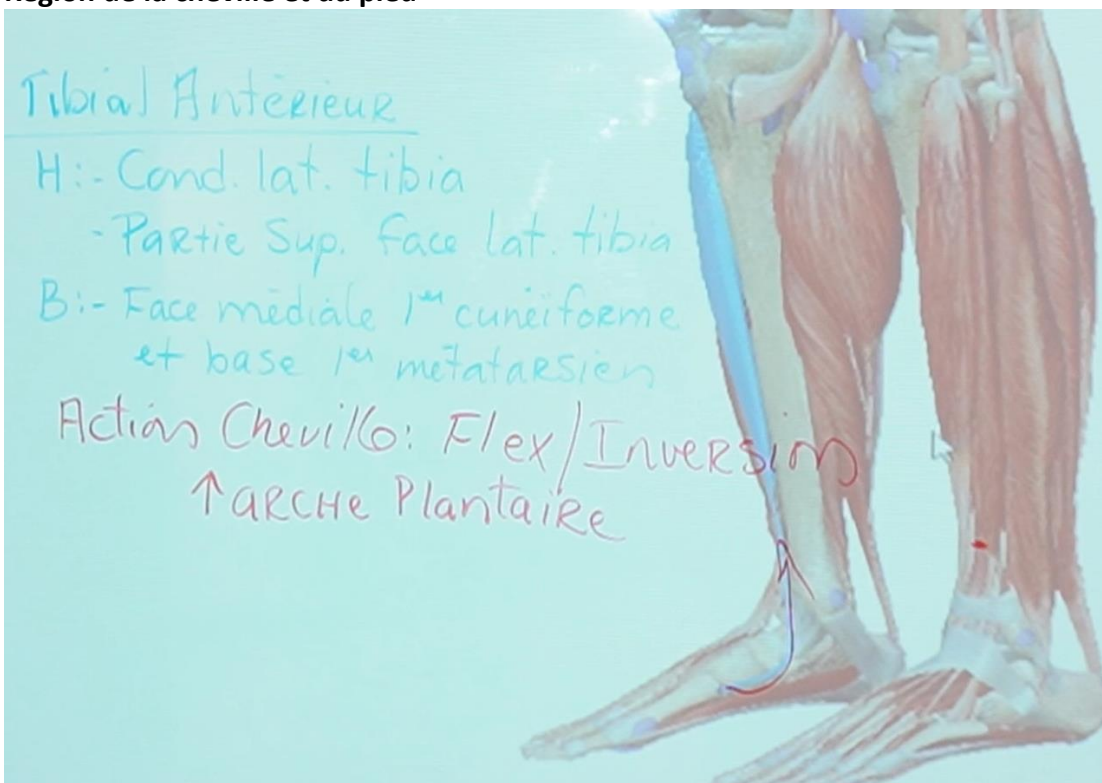 Région de la cheville et du pied
Tibial Antérieur
H:- Cond. lat. tibia
- Partie Sup. face lat. tibia
B:- Face médiale 1er cunéiforme
et base 1er métatarsien
Action Cheville: Flex/Inversion
↑ arche Plantaire